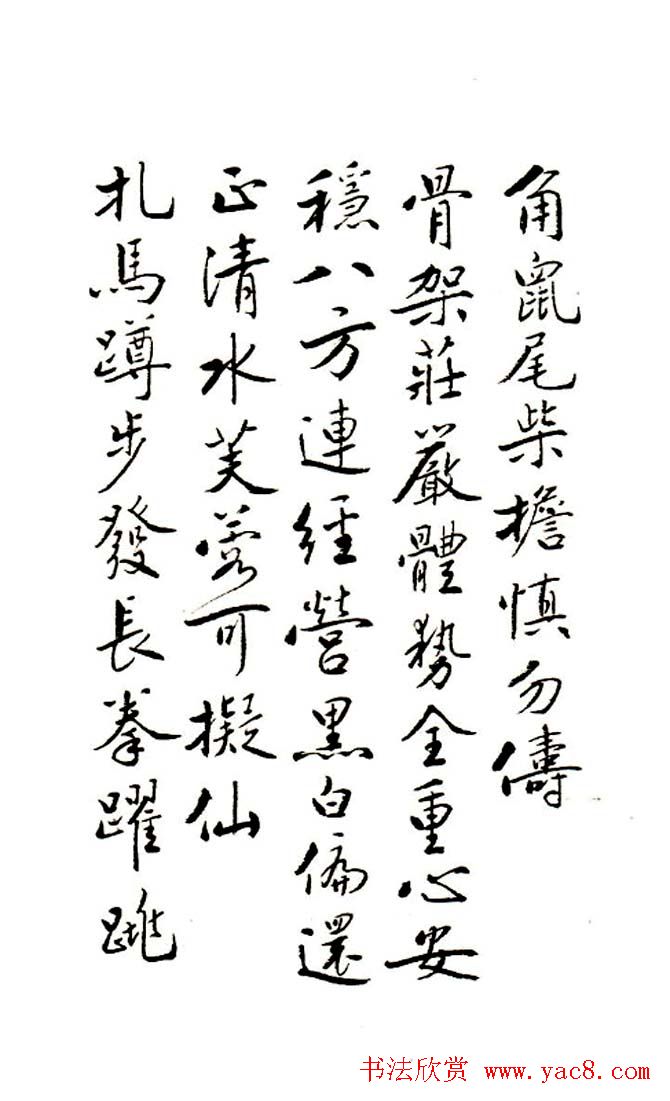 角鼠尾柴擔慎勿儔
骨架莊嚴體勢全重心安
穩八方連經營黑白偏還
正清水芙蓉可擬仙
扎馬蹲步發長拳躍跳
书法欣赏 www.yac8.com